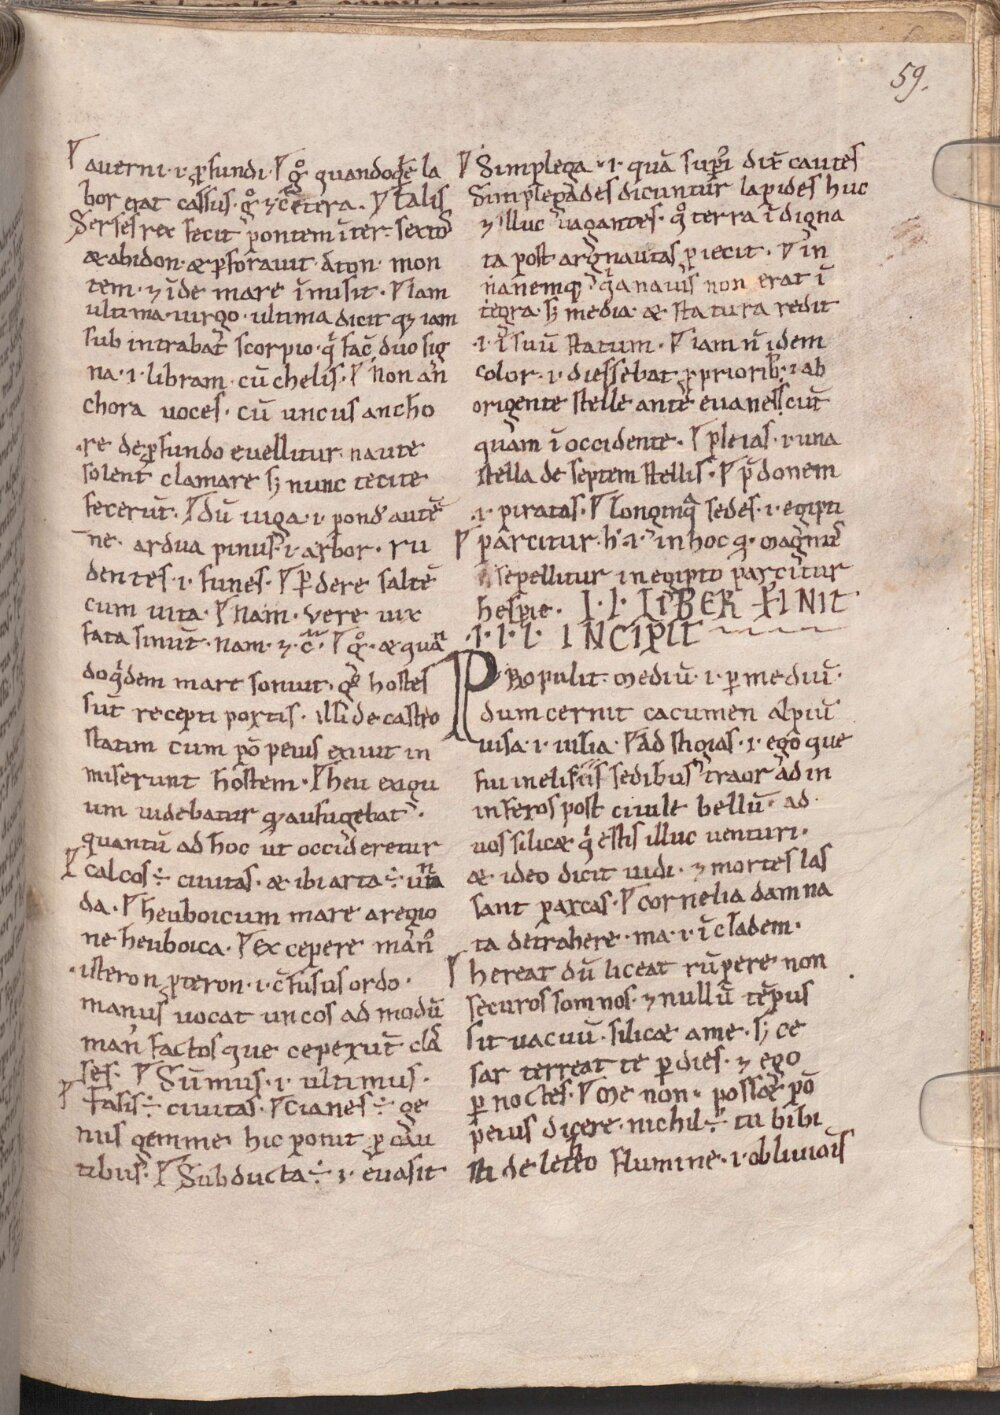 59.
auerni · i · ꝓfundi · gͦ quandoq̄ꝫ la
bor erat cassus · gͦ ⁊ cetera · Talis
Serses rex fecit pontem īter · sexto
æ abidon · æ ꝑforauit aton · mon
tem · ⁊ īde mare īmisit · Iam
ultima · uirgo · ultima dicit qꝫ iam
sub intrabat scorpio · q̄ fac̄ duo sig
na · i · libram · cū chelis · Non an
chora uoces · cū uncus ancho
re de ꝓfundo euellitur naute
solent clamare sꝫ nunc tecite
fecerūt · dū iuga · i · pond autē
ne · ardua pinus · i · arbor · ru
dentes · i · funes · ꝑdere saltē
cum uita · Nam · uere uix
fata sinūt · nam · ⁊ c̄ · gͦ · æ quan
doq̄dem mart soniut · hostes
sūt recepti portis · illi de castro
statim cum pōpeius exiuit in
miserunt hostem · heu exigu
um uidebatur qꝫ aufugebat ·
quantū ad hoc ut occideretur
calcos ÷ ciuitas · æ ibi arta ÷ unda
da · heuboicum mare a regio
ne heuboica · Excepere man̄
isteron ꝓteron · i · c̄fusus ordo ·
manus uocat uncos ad modū
man factos que ceperūt clas
ses · Sūmus · i · ultimus ·
Talis ÷ ciuitas · cianes ÷ ge
nus gemme hic ponit ꝓ cau
tibus · Subducta ÷ · i · euasit
Simplega · i · quā suꝑi dix̄ cautes
Simplegades dicuntur lapides huc
⁊ illuc uagantes · qͦ terra īdigna
ta post argnautas ꝓiecit · in
nanemq̄ q̄a nauis non erat ī
tegra · sꝫ media · æ statura redit
· i · ī suū statum · iam n̄ idem
color · i · diessebat · ꝓ priorib; · i · ab
origente stelle ante euanescūt
quam ī occidente · pleias · i · una
stella de septem stellis · p̄donem
· i · piratas · Longinq̄ sedes · i · egipti
parcitur · h · i · in hoc q · magnus
sepellitur in egipto parcitur
hespie · I · I · LIBER FINIT
· I · I · I · INCIPIT
PRopulit · mediū · i · ꝑ mediū ·
dum cernit cacumen alpiū
uisa · i · iulia · Ad stigias · i · ego que
fui in elisiis sedibus traor ad in
inferos post ciuile bellū · ad
uos silicæ q̄ estis illuc uenturi ·
æ ideo dicit uidi · ⁊ mortes las
sant parcas · cornelia damna
ta detrahere · ma · i · ī cladem ·
hereat dū liceat rūpere non
securos somnos · ⁊ nullū tēpus
sit uacuū · silicæ a me · sꝫ ce
sar terreat te ꝑ dies · ⁊ ego
ꝑ noctes · me non · possæ pō
peius dicere · nichil ÷ tu bibi
sti de leteo flumine · i · obliuiōis